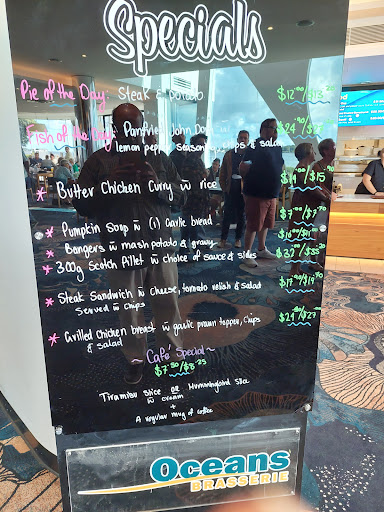 Specials
Pie of the Day: Steak & potato $12.00/$13.20
Fish of the Day: Panfried John Dory
lemon pepper seasoning, chips & salad
Butter Chicken Curry w rice
Pumpkin Soup w (1) Garlic bread $7.00/$7.70
Bangers w mash potato & gravy
300g Scotch Fillet w choice of sauce & sides
Steak Sandwich w Cheese, tomato relish & salad
Served w chips
Grilled Chicken breast w garlic prawn topper, Chips
& salad
~ Café Special ~
$7.50/$8.25
Tiramisu Slice OR Hummingbird Slice
w cream
+
A regular mug of coffee
Oceans
BRASSERIE